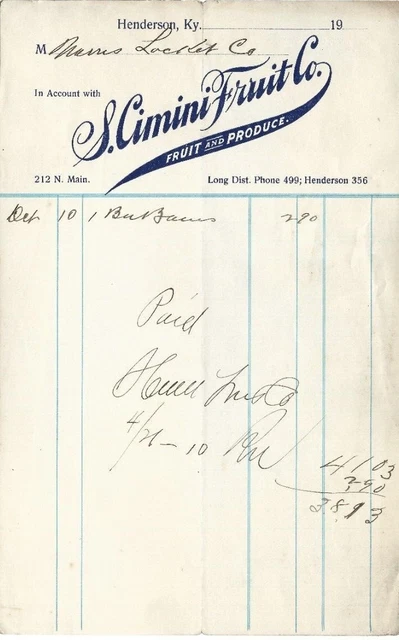 Henderson, Ky. 19
M Morris Locket Co
In Account with
S. Cimini Fruit Co.
FRUIT AND PRODUCE.
212 N. Main. Long Dist. Phone 499; Henderson 356
Oct 10 1 290
Paid
Co
4/21-10
4103
290
3813